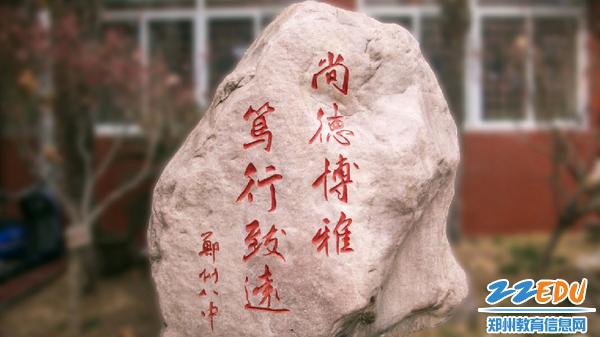 尚德博雅
笃行致遠
鄭州八中
ZZEDU
郑州教育信息网